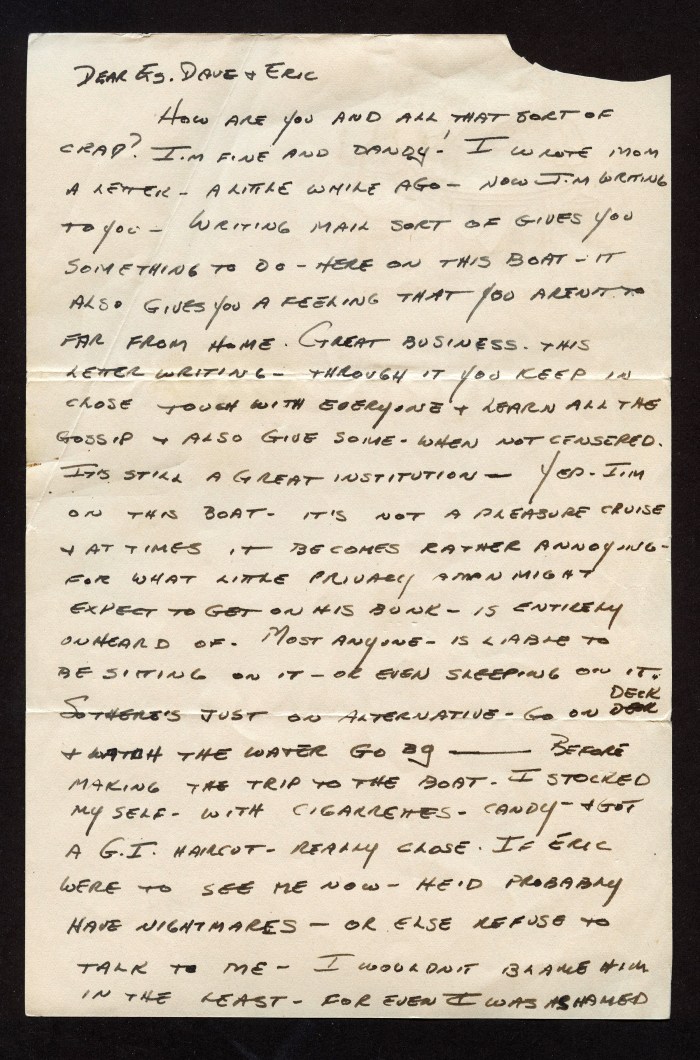 DEAR ES. DAVE & ERIC
HOW ARE YOU AND ALL THAT SORT OF
CRAP? I'M FINE AND DANDY! I WROTE MOM
A LETTER - A LITTLE WHILE AGO - NOW I'M WRITING
TO YOU - WRITING MAIL SORT OF GIVES YOU
SOMETHING TO DO - HERE ON THIS BOAT - IT
ALSO GIVES YOU A FEELING THAT YOU AREN'T TO
FAR FROM HOME. GREAT BUSINESS. THIS
LETTER WRITING - THROUGH IT YOU KEEP IN
CLOSE TOUCH WITH EVERYONE & LEARN ALL THE
GOSSIP & ALSO GIVE SOME - WHEN NOT CENSERED.
IT'S STILL A GREAT INSTITUTION — YEP - I'M
ON THIS BOAT - IT'S NOT A PLEASURE CRUISE
& AT TIMES IT BECOMES RATHER ANNOYING -
FOR WHAT LITTLE PRIVACY A MAN MIGHT
EXPECT TO GET ON HIS BUNK - IS ENTIRELY
UNHEARD OF. MOST ANYONE - IS LIABLE TO
BE SITTING ON IT - OR EVEN SLEEPING ON IT.
DECK
SO THERE'S JUST ON ALTERNATIVE - GO ON
& WATCH THE WATER GO BY — BEFORE
MAKING THE TRIP TO THE BOAT - I STOCKED
MY SELF - WITH CIGARRETTES - CANDY - & GOT
A G.I. HAIRCUT - REALLY CLOSE. IF ERIC
WERE TO SEE ME NOW - HE'D PROBABLY
HAVE NIGHTMARES - OR ELSE REFUSE TO
TALK TO ME - I WOULDN'T BLAME HIM
IN THE LEAST - FOR EVEN I WAS ASHAMED